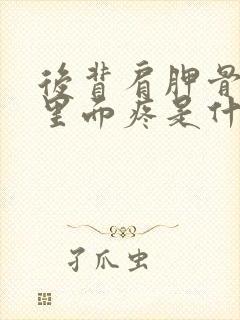 後背肩胛骨
里面疼是什
孑爪虫